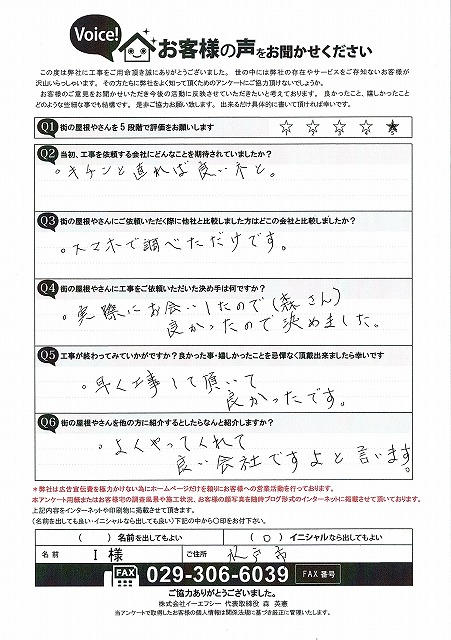 Voice!
お客様の声をお聞かせください
この度は弊社に工事をご用命頂き誠にありがとうございました。 世の中には弊社の存在やサービスをご存知ないお客様が
沢山いらっしゃいます。 その方たちに弊社をよく知って頂くためのアンケートにご協力頂けないでしょうか。
お客様のご意見をお聞かせいただき今後の活動に反映させていただきたいと考えております。 良かったこと、嬉しかったこと
どのような些細な事でも結構です。 是非ご協力お願い致します。 出来るだけ具体的に書いて頂ければ幸いです。
Q1 街の屋根やさんを5段階で評価をお願いします ☆ ☆ ☆ ☆ ★
Q2 当初、工事を依頼する会社にどんなことを期待されていましたか?
・キチンと直れば良い
Q3 街の屋根やさんにご依頼いただく際に他社と比較しました方はどこの会社と比較しましたか?
・スマホで調べただけです。
Q4 街の屋根やさんに工事をご依頼いただいた決め手は何ですか?
・実際にお会いしたので(森さん)
良かったので決めました。
Q5 工事が終わってみていかがですか?良かった事・嬉しかったことを忌憚なく頂戴出来ましたら幸いです
・早く工事して頂いて
良かったです。
Q6 街の屋根やさんを他の方に紹介するとしたらなんと紹介しますか?
・よくやってくれて
良い会社ですよと言います。
*弊社は広告宣伝費を極力かけない為にホームページだけを頼りにお客様への営業活動を行っております。
本アンケート用紙またはお客様宅の調査風景や施工状況、お客様の顔写真を随時ブログ形式のインターネットに掲載させて頂いております。
上記内容をインターネットや印刷物に掲載させて頂きます。
(名前を出しても良い・イニシャルなら出しても良い)下記の中から〇印をお付下さい。
( )名前を出してもよい ( 〇 )イニシャルなら出してもよい
名前 I様 ご住所 水戸市
FAX 029-306-6039 FAX番号
ご協力ありがとうございました。
株式会社イーエフシー 代表取締役 森 英憲
当アンケートで取得したお客様の個人情報は関係法規に基づき厳正に管理いたします。